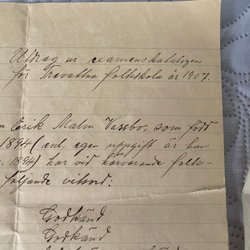 Utdrag ur examenskatalogen
för Trevattna folkskola år 1907.
Erik Malm Vassbo, som född
1894 (enl. egen uppgift är han
1894) har vid härvarande folk-
följande vitsord:
Godkänd
Godkänd